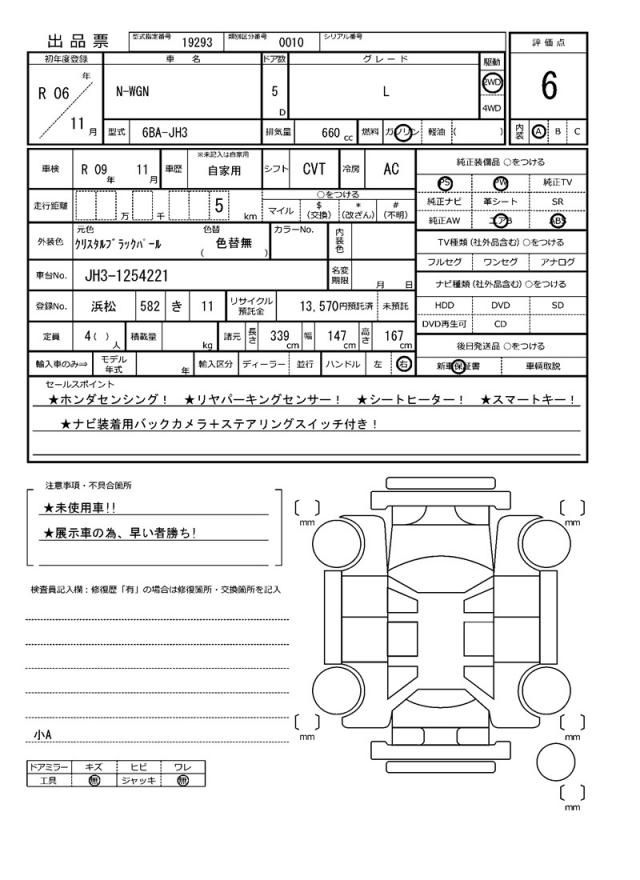 出品票
型式指定番号 19293 類別区分番号 0010 シリアル番号
評価点
6
内装 A B C
初年度登録 車名 ドア数 グレード 駆動
R 06 年 11 月
N-WGN 5 D L
2WD
4WD
型式 6BA-JH3 排気量 660 cc 燃料 ガソリン 軽油 ( )
車検 R 09 年 11 月 車歴 ※未記入は自家用 自家用 シフト CVT 冷房 AC
走行距離 万 千 5 km
○をつける
マイル $ (交換) * (改ざん) # (不明)
外装色 元色 クリスタルブラックパール 色替 ( 色替無 ) カラーNo. 内装色
車台No. JH3-1254221 名変期限 月 日
登録No. 浜松 582 き 11 リサイクル預託金 13,570円預託済 未預託
定員 4( ) 人 積載量 kg 諸元 長さ 339 cm 幅 147 cm 高さ 167 cm
輸入車のみ⇒ モデル年式 年 輸入区分 ディーラー 並行 ハンドル 左 右
純正装備品 ○をつける
PS PW 純正TV
純正ナビ 革シート SR
純正AW エアB ABS
TV種類 (社外品含む) ○をつける
フルセグ ワンセグ アナログ
ナビ種類 (社外品含む) ○をつける
HDD DVD SD
DVD再生可 CD
後日発送品 ○をつける
新車保証書 車輌取説
セールスポイント
★ホンダセンシング！ ★リヤパーキングセンサー！ ★シートヒーター！ ★スマートキー！
★ナビ装着用バックカメラ＋ステアリングスイッチ付き！
注意事項・不具合箇所
★未使用車!!
★展示車の為、早い者勝ち!
検査員記入欄：修復歴「有」の場合は修復箇所・交換箇所を記入
小A
ドアミラー キズ ヒビ ワレ
工具 無 ジャッキ 無
mm mm
mm mm
mm